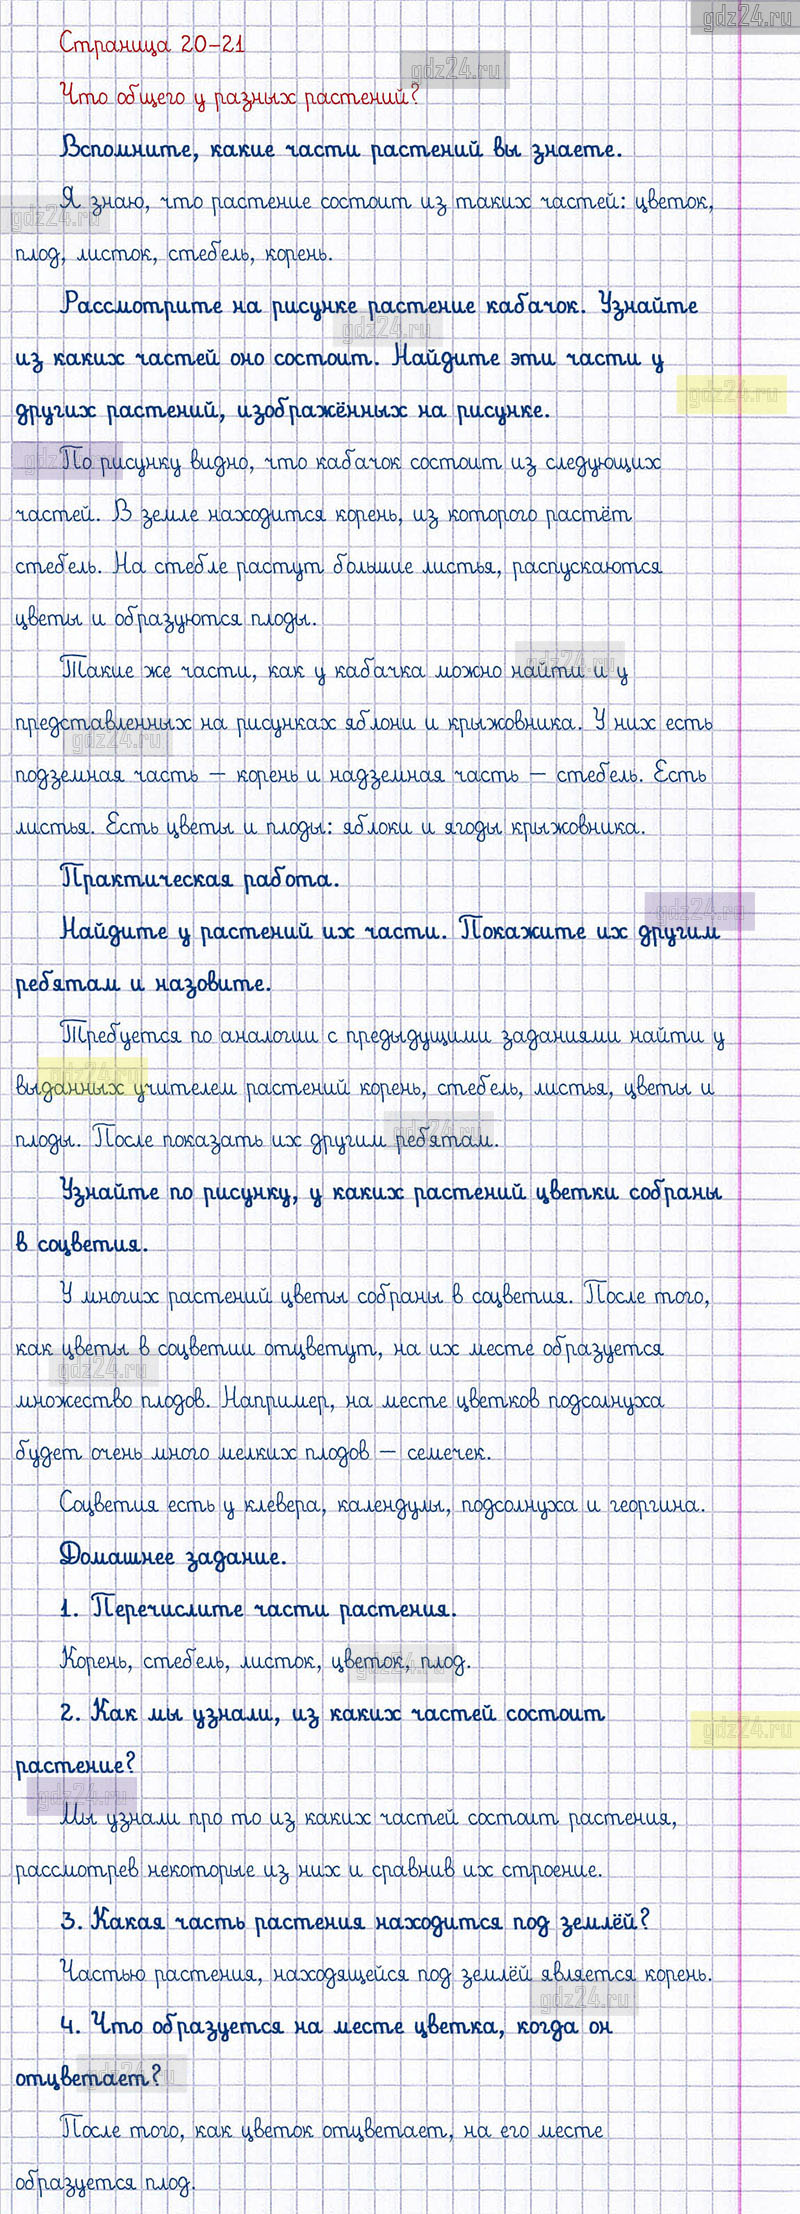 gdz24.ru
Страница 20-21
gdz24.ru
Что общего у разных растений?
Вспомните, какие части растений вы знаете.
Я знаю, что растение состоит из таких частей: цветок,
gdz24.ru
плод, листок, стебель, корень.
Рассмотрите на рисунке растение кабачок. Узнайте
gdz24.ru
из каких частей оно состоит. Найдите эти части у
gdz24.ru
других растений, изображённых на рисунке.
gdz24.ru
По рисунку видно, что кабачок состоит из следующих
частей. В земле находится корень, из которого растёт
стебель. На стебле растут большие листья, распускаются
цветы и образуются плоды.
gdz24.ru
Такие же части, как у кабачка можно найти и у
представленных на рисунках яблони и крыжовника. У них есть
gdz24.ru
подземная часть – корень и надземная часть – стебель. Есть
листья. Есть цветы и плоды: яблоки и ягоды крыжовника.
Практическая работа.
gdz24.ru
Найдите у растений их части. Покажите их другим
ребятам и назовите.
Требуется по аналогии с предыдущими заданиями найти у
gdz24.ru
выданных учителем растений корень, стебель, листья, цветы и
gdz24.ru
плоды. После показать их другим ребятам.
Узнайте по рисунку, у каких растений цветки собраны
в соцветия.
У многих растений цветы собраны в соцветия. После того,
как цветы в соцветии отцветут, на их месте образуется
gdz24.ru
множество плодов. Например, на месте цветков подсолнуха
будет очень много мелких плодов – семечек.
Соцветия есть у клевера, календулы, подсолнуха и георгина.
Домашнее задание.
1. Перечислите части растения.
Корень, стебель, листок, цветок, плод.
gdz24.ru
2. Как мы узнали, из каких частей состоит
gdz24.ru
растение?
gdz24.ru
Мы узнали про то из каких частей состоит растения,
рассмотрев некоторые из них и сравнив их строение.
3. Какая часть растения находится под землёй?
Частью растения, находящейся под землёй является корень.
gdz24.ru
4. Что образуется на месте цветка, когда он
отцветает?
gdz24.ru
После того, как цветок отцветает, на его месте
образуется плод.